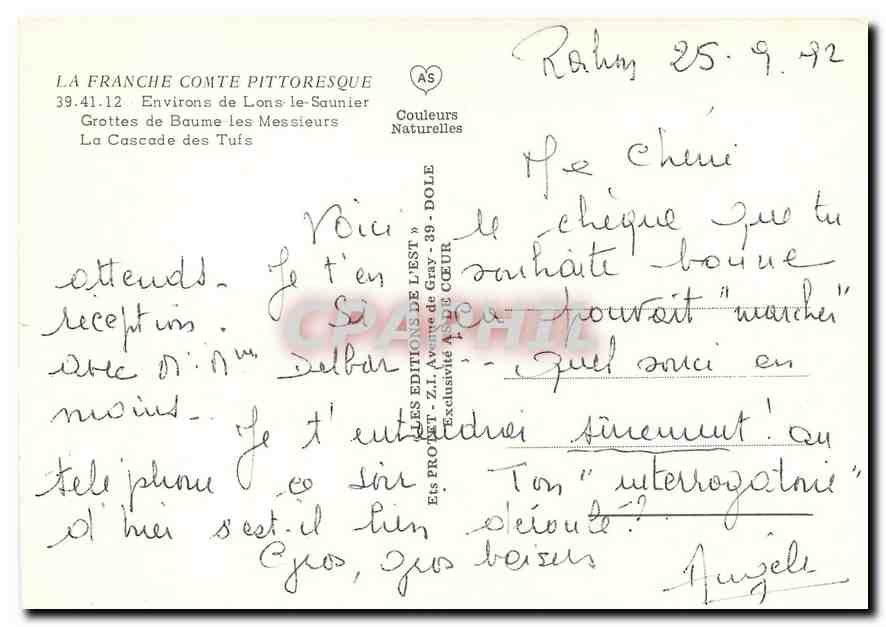 LA FRANCHE COMTE PITTORESQUE
39.41.12 Environs de Lons-le-Saunier
Grottes de Baume-les-Messieurs
La Cascade des Tufs
AS
Couleurs
Naturelles
« LES EDITIONS DE L'EST »
Ets PROTET - Z.I. Avenue de Gray - 39 - DOLE
Exclusivité AS DE CŒUR
CPAPHIL
Rahon 25.9.92
Ma Chérie
Voici le chèque que tu
attends. Je t'en souhaite bonne
réception. Si ça pouvait "marcher"
avec M. Mme Delbar -- quel souci en
moins..
Je t'entendrai sûrement! au
téléphone ce soir. Ton "interrogatoire"
d'hier s'est-il bien déroulé?
Gros, gros baisers